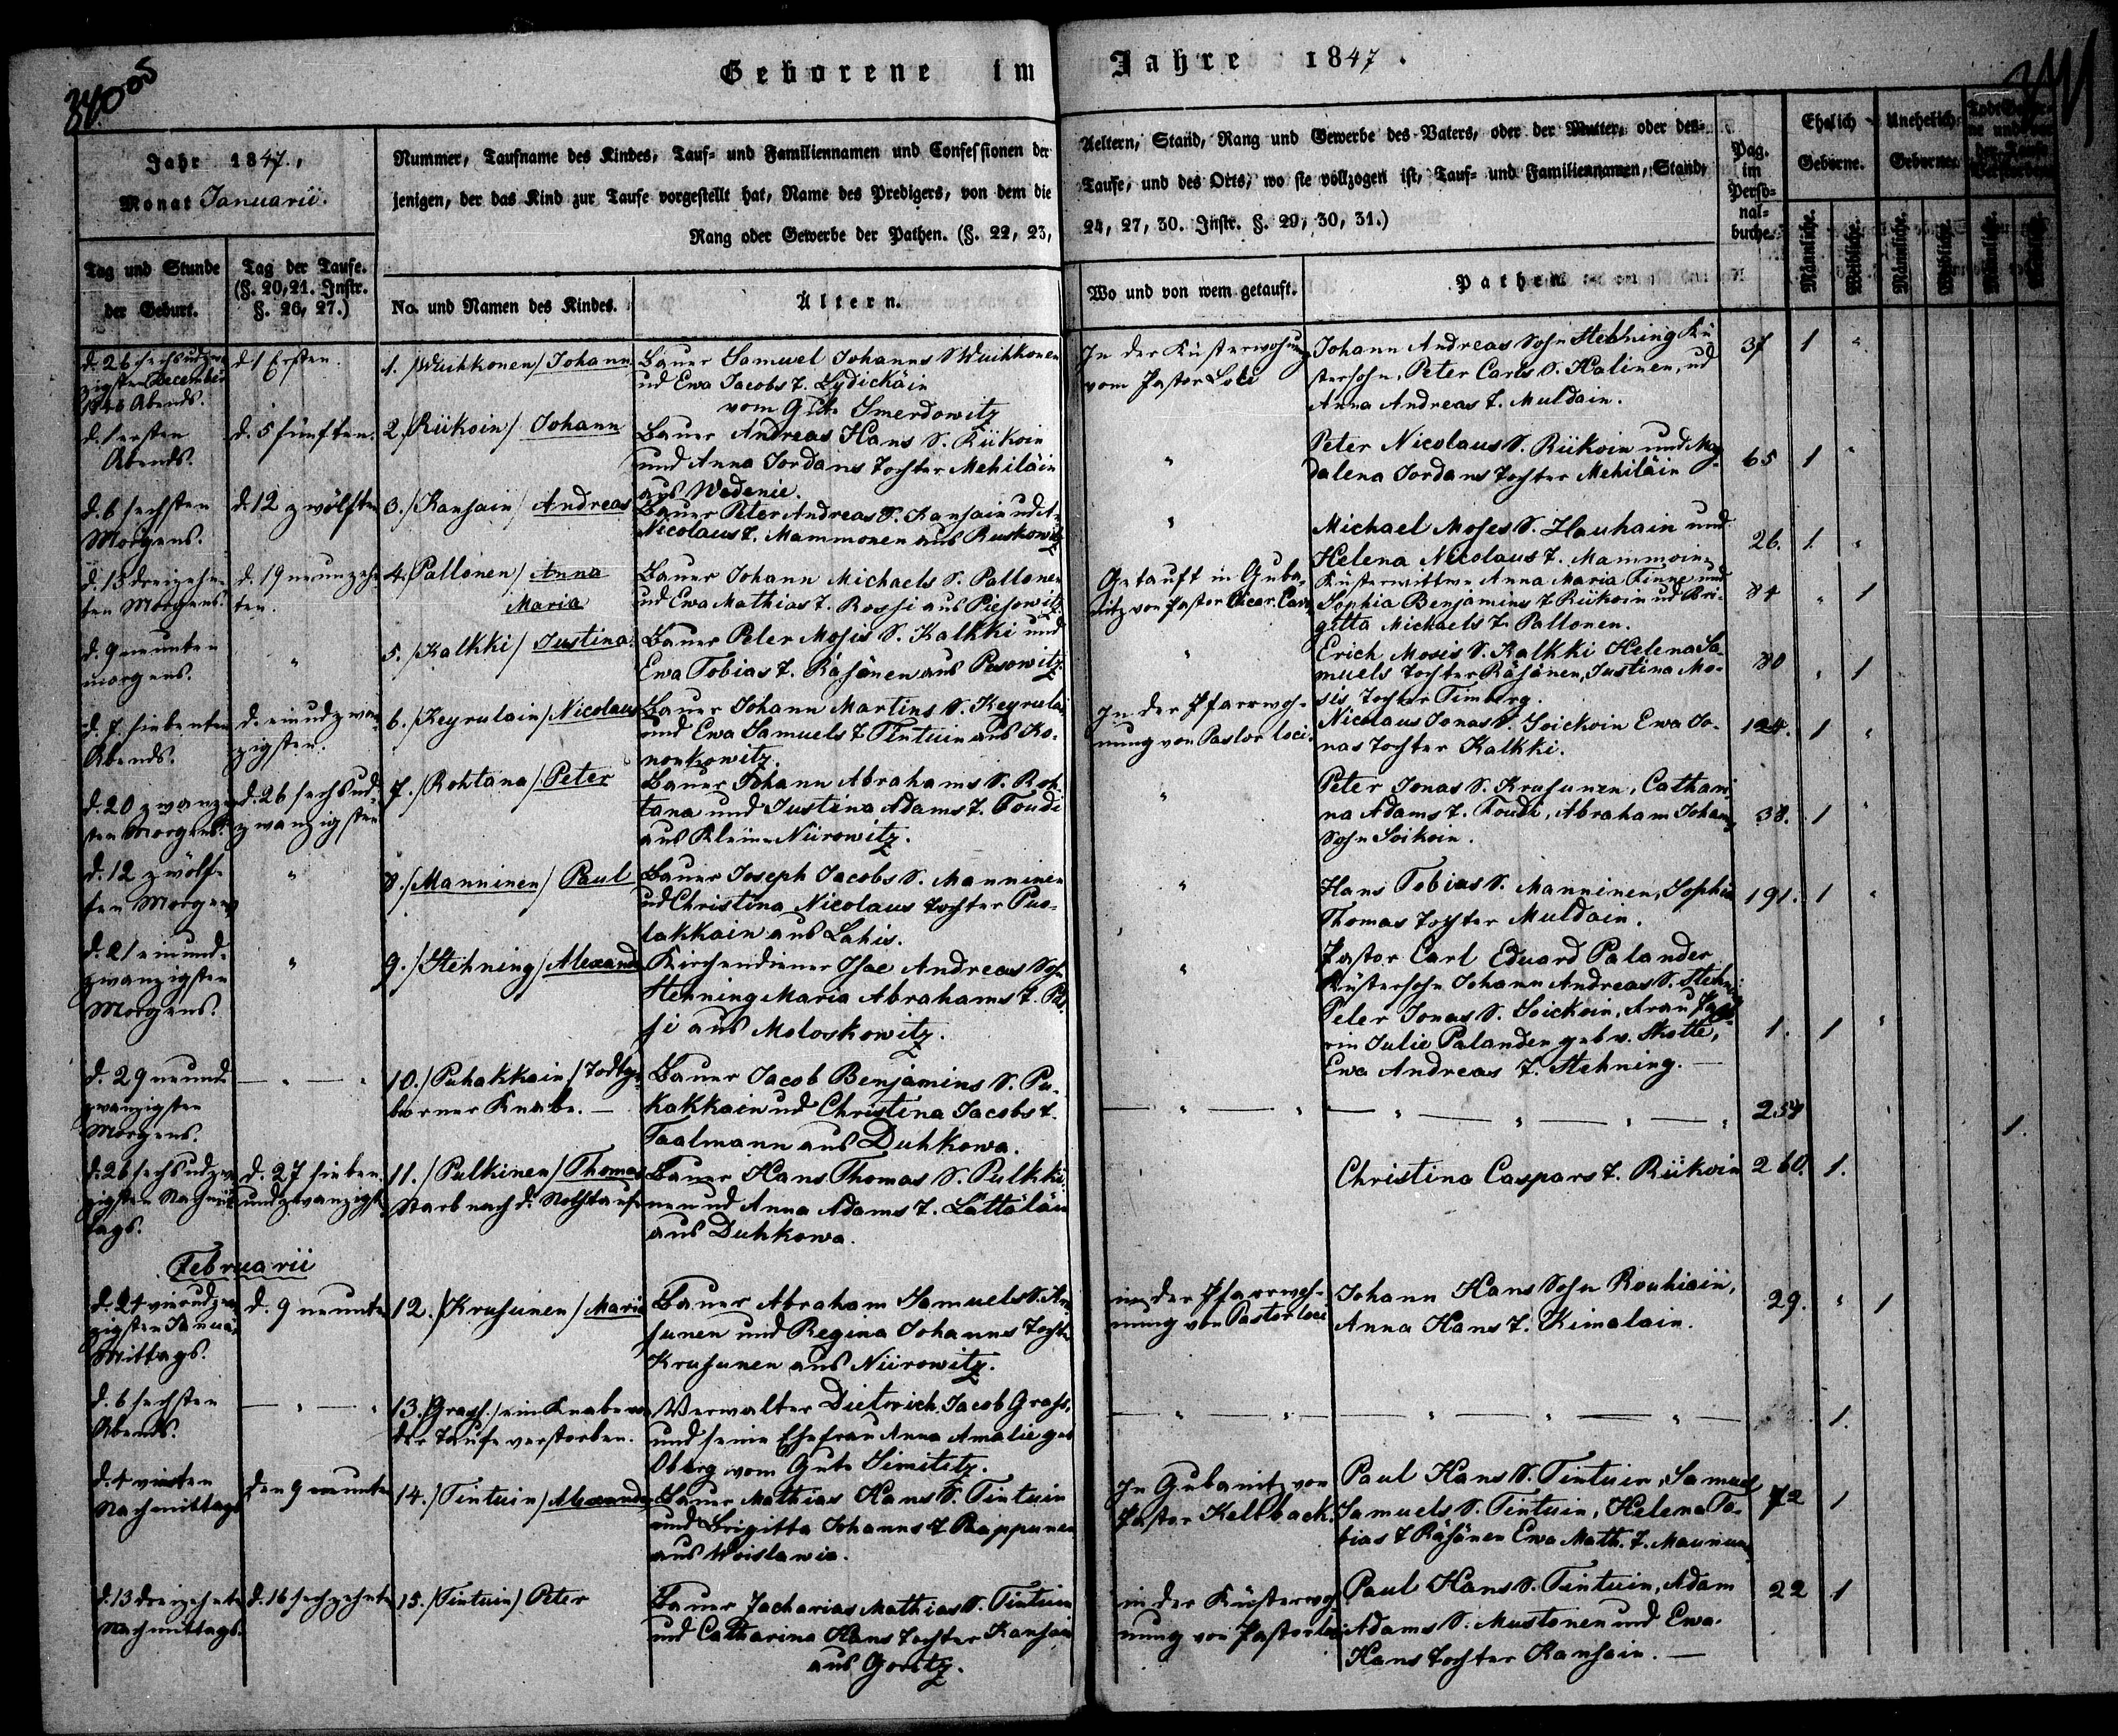 Geborene im Jahre 1847.
Jahr 1847.
Monat Januarii.
Nummer, Taufname des Kindes, Tauf- und Familiennamen und Confessionen der Aeltern, Stand, Rang und Gewerbe des Vaters, oder der Mutter, oder des-
jenigen, der das Kind zur Taufe vorgestellt hat, Name des Predigers, von dem die Taufe, und des Orts, wo sie vollzogen ist, Tauf- und Familiennamen, Stand,
Rang oder Gewerbe der Pathen. (§. 22, 23, 24, 27, 30. Instr. §. 29, 30, 31.)
Pag.
im
Perso-
nal-
buche.
Ehelich
Geborne.
Unehelich
Geborne.
Männliche.
Weibliche.
Männliche.
Weibliche.
Tag und Stunde
der Geburt.
Tag der Taufe.
(§. 20, 21. Instr.
§. 26, 27.)
No. und Namen des Kindes.
Ältern.
Wo und von wem getauft.
Pathen
d. 26 sechsudzwan
zigsten December
1846 Abends.
d. 1 Ersten.
1. /Wuihkonen/ Johann
Bauer Samuel Johanns S. Wuihkonen
ud Ewa Jacobs T. Lydickäin
vom Gute Smerdowitz
In der Küsterwohnung
vom Pastor Loci
Johann Andreas Sohn Stehning Kü
stersohn, Peter Carls S. Halinen, ud
Anna Andreas T. Muldain.
37 1 "
d. 1 ersten
Abends.
d. 5 fünften.
2. /Rükoin/ Johann
Bauer Andreas Hans S. Rükoin
und Anna Jordans Tochter Mehiläin
aus Wedenie.
"
Peter Nicolaus S. Rükoin und Mag
dalena Jordans Tochter Mehiläin
65 1 "
d. 6 sechsten
Morgens.
d. 12 zwölften
3. /Kansain/ Andreas
Bauer Peter Andreas S. Kansain ud A.
Nicolaus T. Mammonen aus Ruskowitz
"
Michael Moses S. Hauhain und
Helena Nicolaus T. Mammoin
26. 1. "
d. 13 dreizehn
ten Morgens.
d. 19 neunzehn
ten.
4. /Pallonen/ Anna
Maria
Bauer Johann Michaels S. Pallonen
ud Ewa Mathias T. Rossi aus Piesowitz
Getauft in Guba
nitz von Pastor Vicar.
Küsterwittwe Anna Maria Finne und
Sophia Benjamins T. Rükoin ud Bri-
gitta Michaels T. Pallonen.
84 " 1
d. 9 neunten
morgens.
"
5. /Kalkki/ Justina
Bauer Peter Mosis S. Kalkki und
Ewa Tobias T. Räsänen aus Pesowitz
"
Erich Mosis S. Kalkki Helena Sa-
muels Tochter Räsänen, Justina Mo-
sis Tochter Timberg.
80 " 1
d. 7. siebenten
Abends.
d. einudzwan
zigsten.
6. /Keyrulain/ Nicolaus
Bauer Johann Martins S. Keyrulai
und Ewa Samuels T. Tintuin aus Ko-
nonkowitz.
In der Pfarrwoh-
nung von Pastor loci.
Nicolaus Jonas S. Soickoin Ewa Jo-
nas Tochter Kalkki.
124. 1 "
d. 20 zwanzig
sten Morgens.
d. 26 sechsud
zwanzigsten
7. /Rohtana/ Peter
Bauer Johann Abrahams S. Roh-
tana und Justina Adams T. Toudi
aus Klein Nürowitz.
"
Peter Jonas S. Krusunen, Cathari
na Adams T. Toudi, Abraham Johann
Sohn Soikoin.
38. 1 "
d. 12 zwölf-
ten Morgens
"
8. /Manninen/ Paul
Bauer Joseph Jacobs S. Manninen
ud Christina Nicolaus Tochter Puo-
lakkain aus Lahis.
"
Hans Tobias S. Manninen, Sophia
Thomas Tochter Muldain.
191. 1 "
d. 21 einund-
zwanzigsten
Morgens.
"
9. /Stehning/ Alexander
Kirchendiener Isac Andreas Sohn
Stehning Maria Abrahams T.
si aus Moloskowitz.
"
Pastor Carl Eduard Palander
Küstersohn Johann Andreas S. Stehning
Peter Jonas S. Soickoin, Frau Pasto
rin Julie Palander geb v. Skotte,
Ewa Andreas T. Stehning.
1. 1 "
d. 29 neund
zwanzigsten
Morgens.
10. /Puhakkain/ Todtge-
borner Knabe.
Bauer Jacob Benjamins S. Pu-
hakkain ud Christina Jacobs T.
Taalmann aus Duhkowa.
257 1.
d. 26 sechsudzwan
zigsten Nachmit
tags.
d. 27 sieben
undzwanzigst.
11. /Pulkinen/ Thomas
starb nach d. Nothtaufe
Bauer Hans Thomas S. Pulkki
nen ud Anna Adams T. Lättäläin
aus Duhkowa.
Christina Caspars T. Rükoin
260. 1.
Februarii
d. 24 vierudzwan
zigsten Januar
Mittags.
d. 9 neunten
12. /Krusunen/ Maria
Bauer Abraham Samuels S. Kru
sunen und Regina Johanns Tochter
Krusunen aus Nürowitz.
in der Pfarrwoh-
nung von Pastor loci
Johann Hans Sohn Rouhiain,
Anna Hans T. Kimalain.
29. " 1
d. 6 sechsten
Abends.
13. /Grass./ ein Knabe vor
der Taufe verstorben.
Verwalter Dietrich Jacob Grass,
und seine Ehefrau Anna Amalie geb
Oberg vom Gute Simititz.
1.
d. 4 vierten
Nachmittags
den 9 neunten
14. /Tintuin/ Alexander
Bauer Mathias Hans S. Tintuin
und Brigitta Johanns T. Rappunen
aus Woislawia.
In Gubanitz von
Pastor Kellback.
Paul Hans S. Tintuin, Samuel
Samuels S. Tintuin, Helena To-
bias T. Räsänen Ewa Math. T. Maununen
72 1
d. 13 dreizehnten
Nachmittags.
d. 16 sechzehnten
15. /Tintuin/ Peter
Bauer Zacharias Mathias S. Tintuin
und Catharina Hans Tochter Kansain
aus Goritz.
in der Küsterwoh
nung von Pastor loci
Paul Hans S. Tintuin, Adam
Adams S. Mustonen und Ewa
Hans Tochter Kansain.
22 1